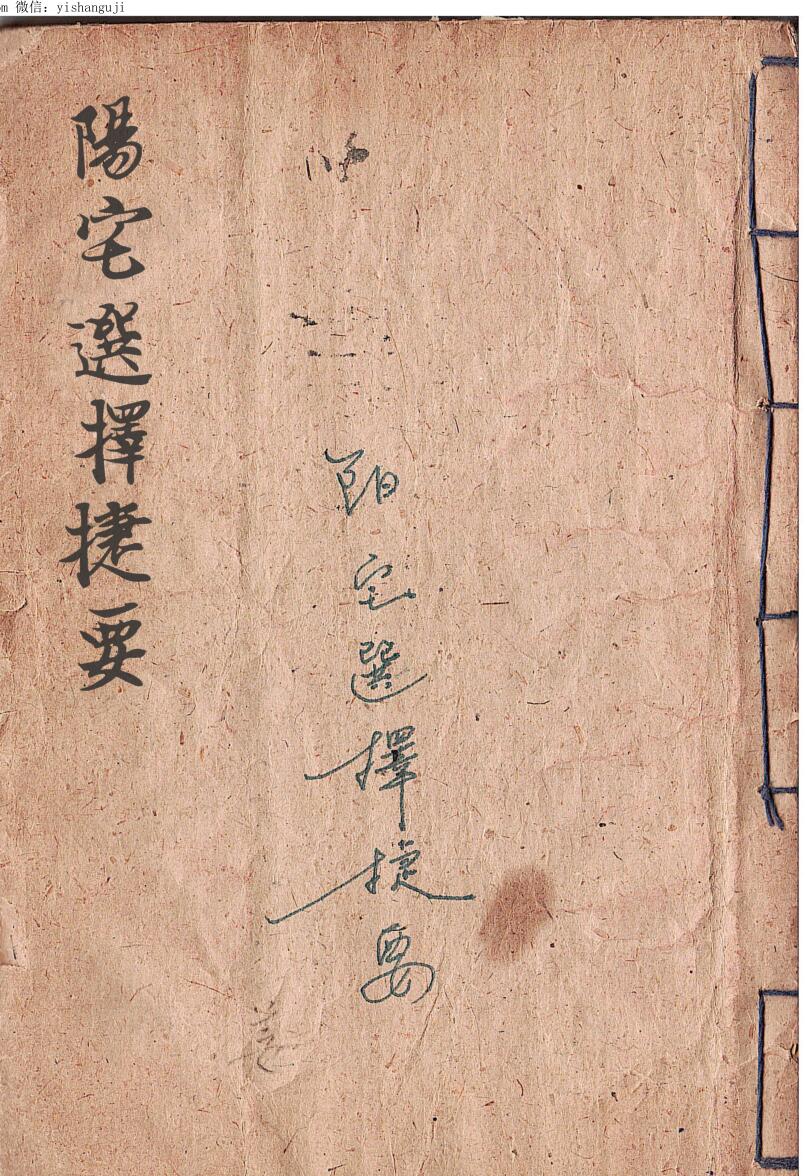 m 微信：yishanguji
陽宅選擇捷要
陽宅選擇捷要